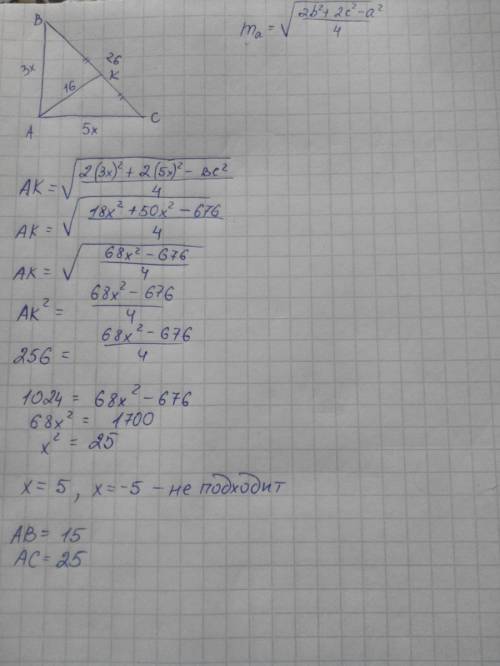 B
m_a = √((2b² + 2c² - a²)/4)
26
K
3x
16
A
5x
C
AK = √((2(3x)² + 2(5x)² - BC²)/4)
AK = √((18x² + 50x² - 676)/4)
AK = √((68x² - 676)/4)
AK² = (68x² - 676)/4
256 = (68x² - 676)/4
1024 = 68x² - 676
68x² = 1700
x² = 25
x = 5, x = -5 - не подходит
AB = 15
AC = 25